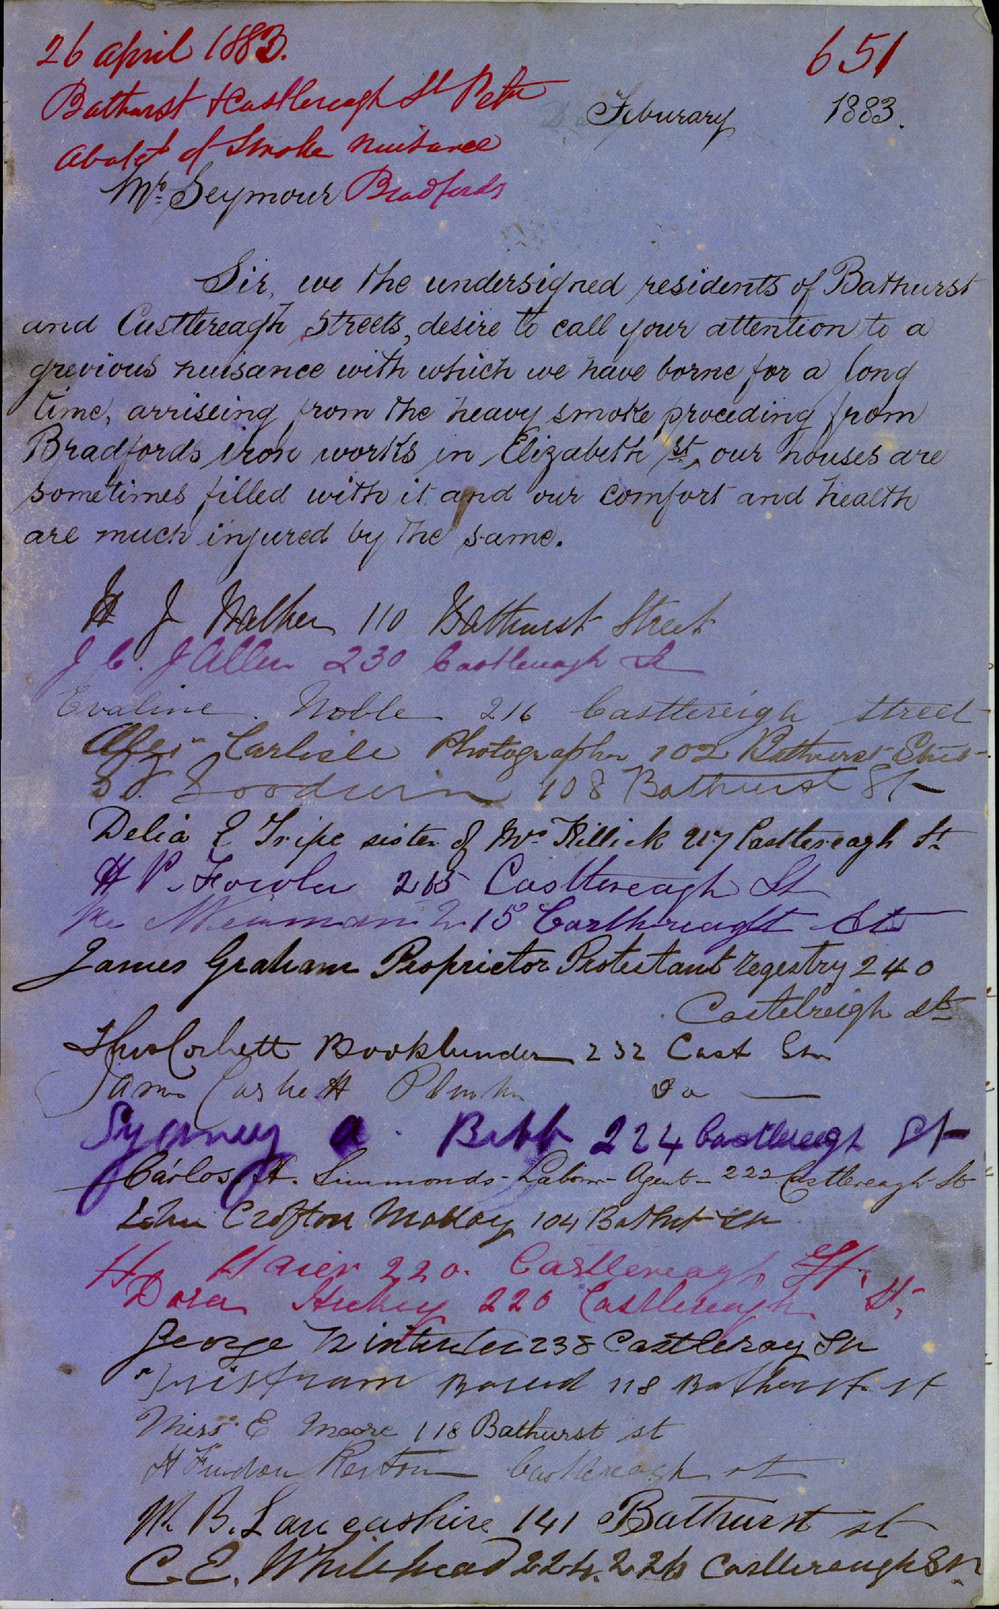 26 April 1883.
651
Bathurst & Castlereagh St Petn
Feburary 1883.
Abatt of Smoke nuisance
Mr. Seymour Bradfords
Sir, we the undersigned residents of Bathurst
and Castlereagh Streets, desire to call your attention to a
grevious nuisance with which we have borne for a long
time, arriseing from the heavy smoke proceding from
Bradfords iron works in Elizabeth St, our houses are
sometimes filled with it and our comfort and health
are much injured by the same.
H J Walker 110 Bathurst Street
J C. J Allen 230 Castlereagh St
Evaline Noble 216 Castlereigh street
Carlisle Photographer 102 Bathurst Street
Goodwin 108 Bathurst St
Delia E Tripe sister of Mrs Killick 217 Castlereagh St
H P. Fowler 215 Castlereagh St
Newman 215 St
James Graham Proprietor Protestant regestry 240
Castelreigh St
Thos Corbett Bookbinder 232 Cast Sn
James Do
Sydney A. Bibb 224 Castlereagh St
Carlos H. Simmonds - Labour Agent - 222 Castlereagh St
John Crofton Molloy 104
H. 220. Castlereagh St.
Dora Hickey 220 Castlereagh St,
George 238 Castleray Sn
118 Bathurst st
Miss E Moore 118 Bathurst st
H Castlereagh st
W. B. Lancashire 141 Bathurst st
C. E. Whitehead 224. 226 Castlereaugh Sn